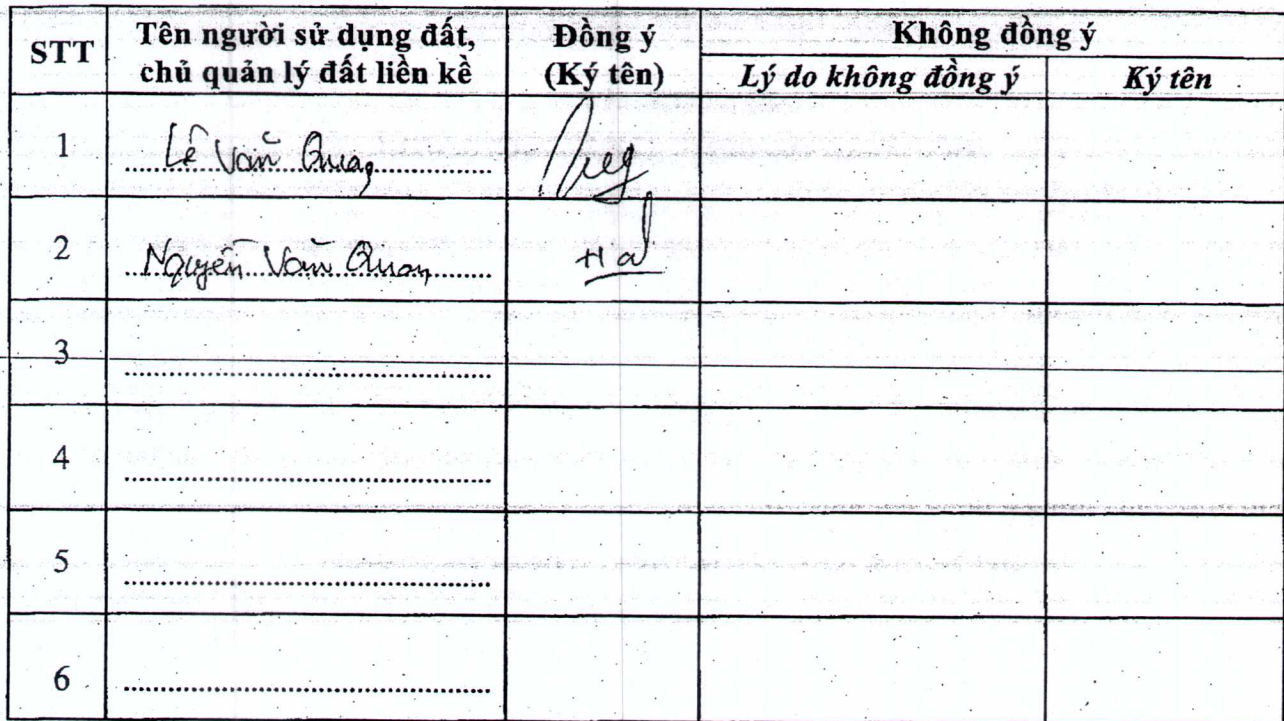 STT
Tên người sử dụng đất,
chủ quản lý đất liền kề
Đồng ý
(Ký tên)
Không đồng ý
Lý do không đồng ý
Ký tên
1
Lê Văn Quang
2
Nguyễn Văn Quang
Hà
3
4
5
6